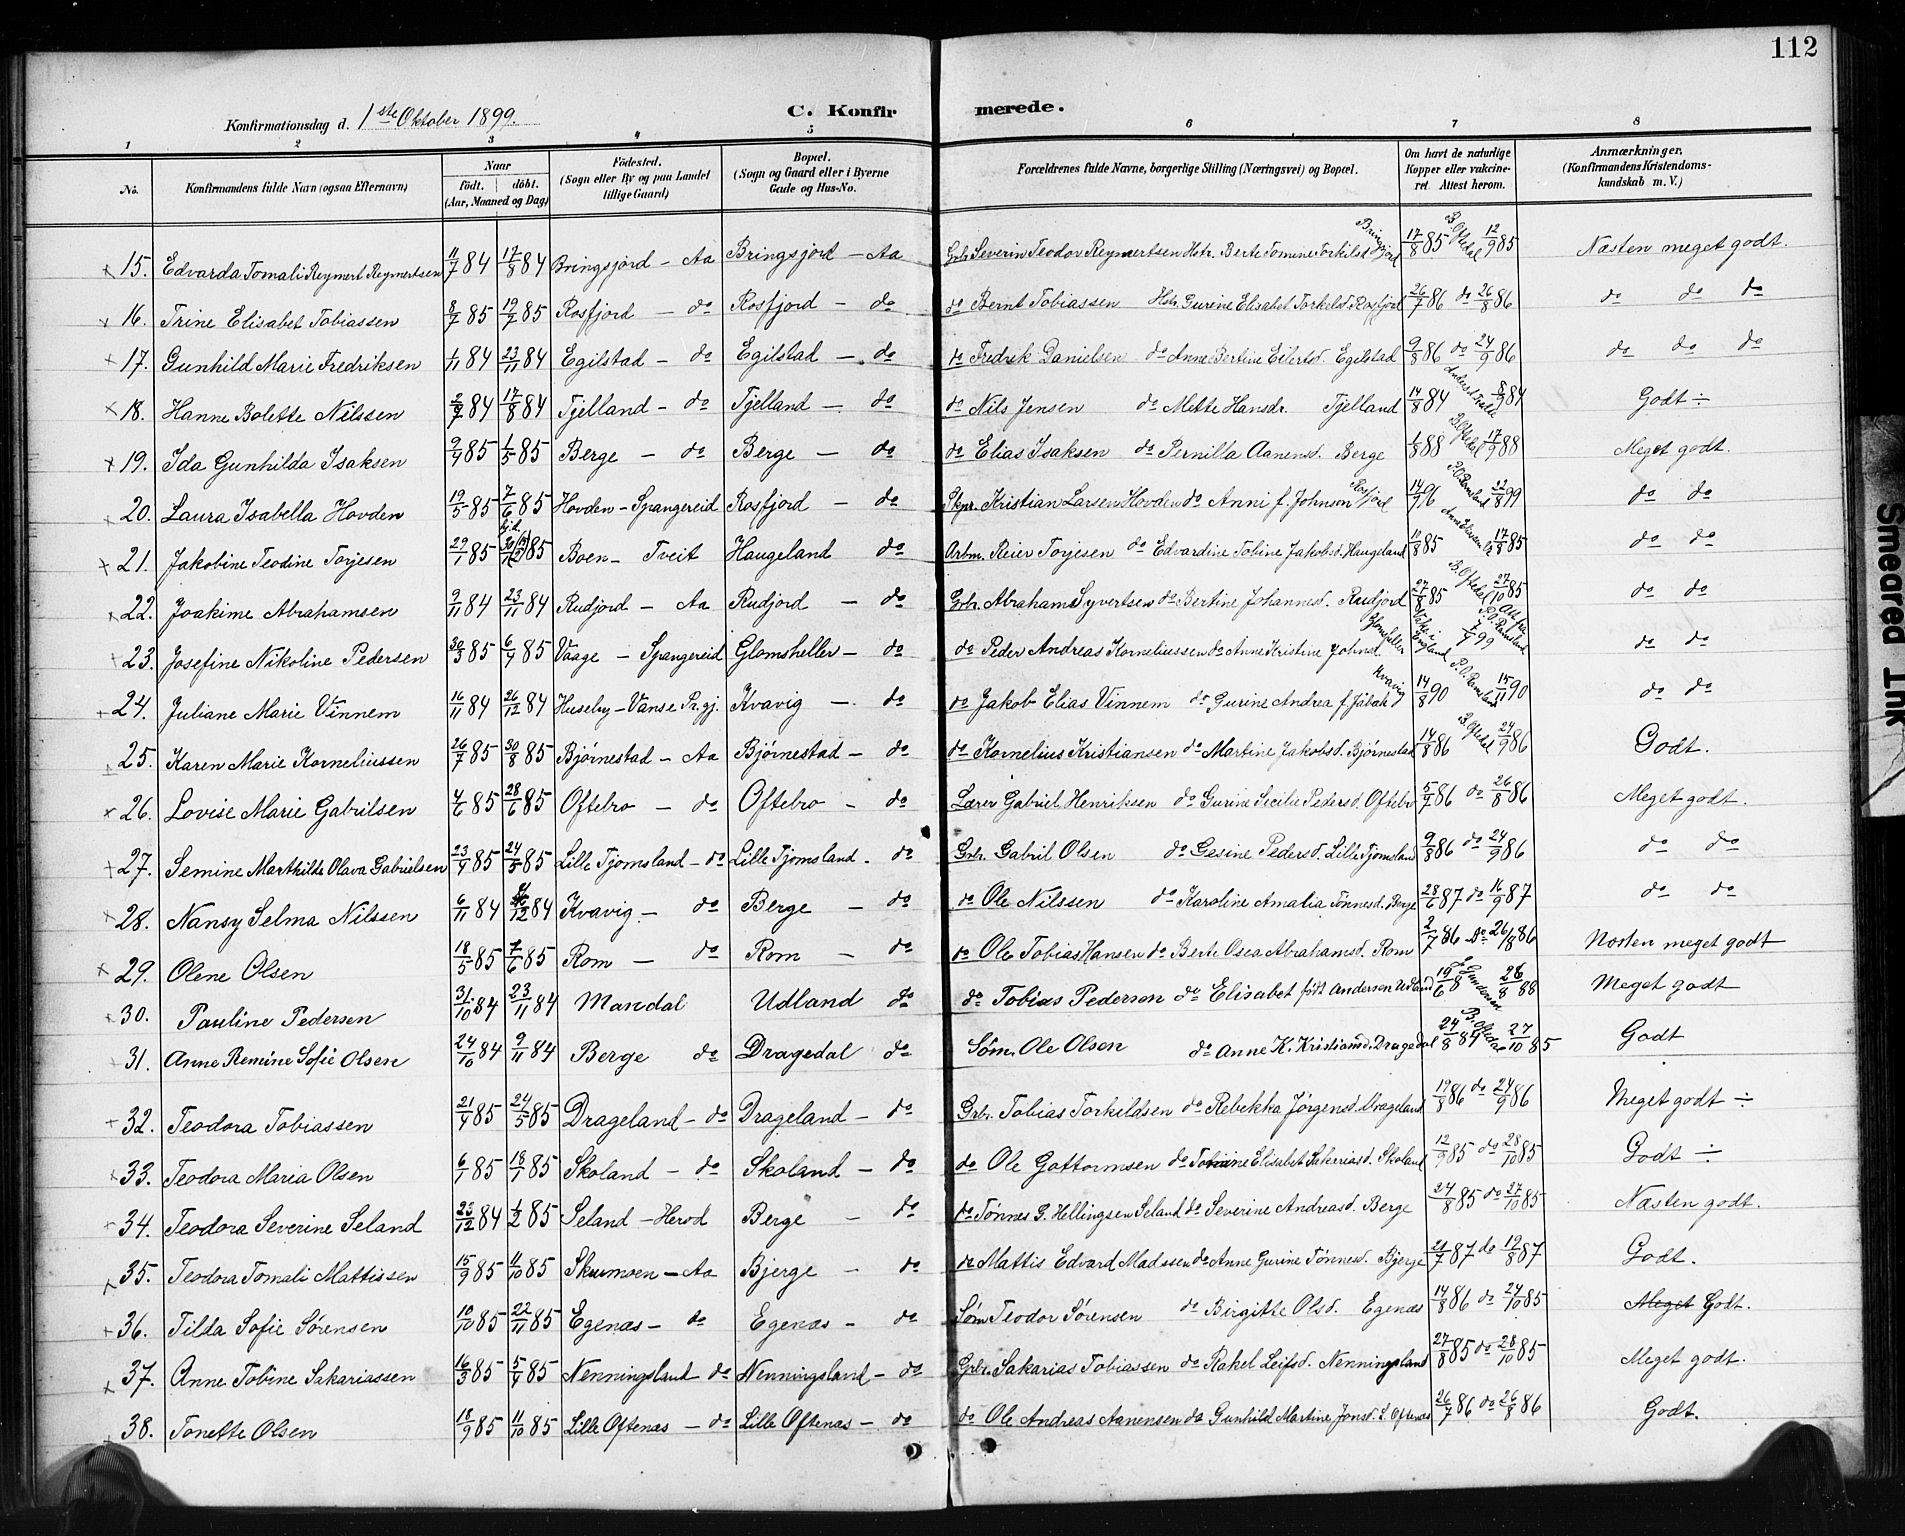 112
Konfirmationsdag d. 1ste Oktober 1899.
C. Konfirmerede.
1 2 3 4 5 6 7 8
No. | Konfirmandens fulde Navn (ogsaa Efternavn) | Naar født. døbt. (Aar, Maaned og Dag) | Fødested. (Sogn eller By og paa Landet tillige Gaard) | Bopæl. (Sogn og Gaard eller i Byerne Gade og Hus-No.) | Forældrenes fulde Navne, borgerlige Stilling (Næringsvei) og Bopæl. | Om havt de naturlige Kopper eller vaccineret. Attest herom. | Anmærkninger. (Konfirmandens Kristendomskundskab m. V.)
15. Edvarda Tomali Reymert Reymertsen 11/7 84 17/8 84 Bringsjord - Aa Bringsjord - Aa Grbr. Severin Teodor Reymertsen Hstr. Berte Tomine Torkilsd. Bringsjord 17/8 85 B. Oftedal 12/9 85 Næsten meget godt.
16. Trine Elisabet Tobiassen 8/7 85 19/7 85 Rosfjord - do Rosfjord - do do Bernt Tobiassen Hstr. Gurine Elisabet Torkelsd. Rosfjord 26/7 86 do 26/8 86 do do do
17. Gunhild Marie Fredriksen 1/11 84 23/11 84 Egilstad - do Egilstad - do do Fredrik Danielsen do Anne Bertine Eilertsd. Egilstad 9/8 86 do 24/9 86 do do do
18. Hanne Bolette Nilssen 2/7 84 17/8 84 Tjelland - do Tjelland - do do Nils Jensen do Mette Hansdr. Tjelland 14/8 84 8/9 84 Godt ÷
19. Ida Gunhilda Isaksen 9/4 85 1/5 85 Berge - do Berge - do do Elias Isaksen do Pernilla Aanensd. Berge 1/8 88 B. Oftedal 17/9 88 Meget godt.
20. Laura Isabella Hovden 19/5 85 7/6 85 Hovden - Spangereid Rosfjord - do Skpr. Kristian Larsen Hovden do Anni f. Johnson Rosfjord 14/9 96 P.O. Ramsland 22/8 99 do do
21. Jakobine Teodine Torjesen 29/7 85 85 Boen - Tveit Haugeland do Arbm. Reier Torjesen do Edvardine Tobine Jakobsd. Haugeland 11/8 85 17/8 85 do do
22. Joakime Abrahamsen 9/11 84 23/11 84 Rudjord - Aa Rudjord - do Grbr. Abraham Syvertsen do Bertine Johannesd. Rudjord 27/8 85 B. Oftedal 27/10 85 do do
23. Josefine Nikoline Pedersen 30/3 85 6/4 85 Vaage - Spangereid Glomsheller - do do Peder Andreas Korneliussen do Anne Kristine Johnsd. Glomsheller i England 7/9 99 P.O. Ramsland do do
24. Juliane Marie Vinnem 16/11 84 26/12 84 Huseby - Vanse Pr.gj. Kvavig - do do Jakob Elias Vinnem do Gurine Andrea f. Jåbæk Kvavig 14/8 90 P.O. Ramsland 15/11 90 do do
25. Karen Marie Korneliussen 26/7 85 30/8 85 Bjørnestad - Aa Bjørnestad - do do Kornelius Kristiansen do Martine Jakobsd. Bjørnestad 14/8 86 B. Oftedal 24/9 86 Godt.
26. Lovise Marie Gabrilsen 4/6 85 28/6 85 Oftebro - do Oftebro - do Lærer Gabriel Henriksen do Gurine Secilie Pedersd. Oftebro 5/7 86 do 26/8 86 Meget godt.
27. Semine Marthilde Olava Gabrielsen 23/4 85 24/5 85 Lille Tjomsland - do Lille Tjomsland - do Grbr. Gabril Olsen do Gesine Pedersd. Lille Tjomsland 9/8 86 do 24/9 86 do do
28. Nansy Selma Nilssen 6/11 84 84 Kvavig - do Berge - do do Ole Nilssen do Karoline Amalia Tønnesd. Berge 28/6 87 do 16/9 87 do do
29. Olene Olsen 18/5 85 7/6 85 Rom - do Rom - do do Ole Tobias Hansen do Berte Osea Abrahamsd. Rom 2/7 86 do 26/8 86 Næsten meget godt
30. Pauline Pedersen 31/10 84 23/11 84 Mandal Udland do do Tobias Pedersen do Elisabet født Andersen Udland 19/6 8 Gundersen 28/8 88 Meget godt
31. Anne Remine Sofie Olsen 24/10 84 9/11 84 Berge do Dragedal do Søm. Ole Olsen do Anne K. Kristiansd. Dragedal 24/8 84 B. Oftedal 27/10 85 Godt
32. Teodora Tobiassen 21/4 85 24/5 85 Drageland - do Drageland - do Grbr. Tobias Torkildsen do Rebekka Jørgensd. Drageland 19/8 86 do 24/9 86 Meget godt ÷
33. Teodora Maria Olsen 6/1 85 18/1 85 Skoland - do Skoland - do do Ole Gottormsen do Tobine Elisabet Sakariasd. Skoland 12/9 85 do 28/10 85 Godt ÷
34. Teodora Severine Seland 23/12 84 1/2 85 Seland - Herod Berge - do do Tønnes G. Hellingsen Seland do Severine Andreasd. Berge 24/8 85 do 27/10 85 Næsten godt.
35. Teodora Tomali Mattissen 15/9 85 11/10 85 Skumoen - Aa Bjerge - do do Mattis Edvard Madssen do Anne Gurine Tønnesd. Bjerge 21/7 87 do 19/8 87 Godt.
36. Tilda Sofie Sørensen 10/10 85 22/11 85 Egenæs - do Egenæs - do Søm. Teodor Sørensen do Birgitte Olsd. Egenæs 14/8 86 do 24/10 85 Meget Godt.
37. Anne Tobine Sakariassen 16/3 85 5/4 85 Nenningsland do Nenningsland - do Grbr. Sakarias Tobiassen do Rakel Leifsd. Nenningsland 27/8 85 do 28/10 85 Meget godt.
38. Tonette Olsen 18/9 85 11/10 85 Lille Oftenæs - do Lille Oftenæs - do do Ole Andreas Aanensen do Gunhild Martine Jonsd. L. Oftenæs 26/7 86 do 26/8 86 Godt.
Smeared Ink